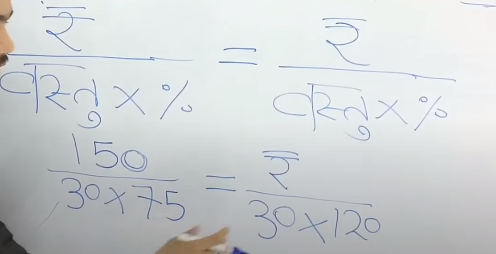 ₹ ₹
= 
वस्तु × % वस्तु × %
150 ₹
=
30×75 30×120